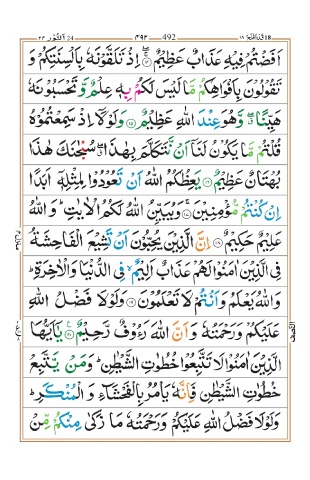 قد افلح ١٨ ٤٩٣ 492 النور 24
اَفَضْتُمْ فِيْهِ عَذَابٌ عَظِيْمٌ ۚ۝ اِذْ تَلَقَّوْنَهٗ بِاَلْسِنَتِكُمْ وَ
تَقُوْلُوْنَ بِاَفْوَاهِكُمْ مَّا لَيْسَ لَكُمْ بِهٖ عِلْمٌ وَّ تَحْسَبُوْنَهٗ
هَيِّنًا ۖ وَّهُوَ عِنْدَ اللّٰهِ عَظِيْمٌ ۝ وَلَوْلَاۤ اِذْ سَمِعْتُمُوْهُ
قُلْتُمْ مَّا يَكُوْنُ لَنَاۤ اَنْ نَّتَكَلَّمَ بِهٰذَا ۖ سُبْحٰنَكَ هٰذَا
بُهْتَانٌ عَظِيْمٌ ۝ يَعِظُكُمُ اللّٰهُ اَنْ تَعُوْدُوْا لِمِثْلِهٖۤ اَبَدًا
اِنْ كُنْتُمْ مُّؤْمِنِيْنَ ۚ۝ وَيُبَيِّنُ اللّٰهُ لَكُمُ الْاٰيٰتِ ؕ وَ اللّٰهُ
عَلِيْمٌ حَكِيْمٌ ۝ اِنَّ الَّذِيْنَ يُحِبُّوْنَ اَنْ تَشِيْعَ الْفَاحِشَةُ
فِي الَّذِيْنَ اٰمَنُوْا لَهُمْ عَذَابٌ اَلِيْمٌ ۙ فِي الدُّنْيَا وَالْاٰخِرَةِ ؕ
وَاللّٰهُ يَعْلَمُ وَاَنْتُمْ لَا تَعْلَمُوْنَ ۝ وَلَوْلَا فَضْلُ اللّٰهِ
عَلَيْكُمْ وَرَحْمَتُهٗ وَ اَنَّ اللّٰهَ رَءُوْفٌ رَّحِيْمٌ ۝ يٰۤاَيُّهَا
الَّذِيْنَ اٰمَنُوْا لَا تَتَّبِعُوْا خُطُوٰتِ الشَّيْطٰنِ ؕ وَمَنْ يَّتَّبِعْ
خُطُوٰتِ الشَّيْطٰنِ فَاِنَّهٗ يَاْمُرُ بِالْفَحْشَآءِ وَ الْمُنْكَرِ ؕ
وَلَوْلَا فَضْلُ اللّٰهِ عَلَيْكُمْ وَرَحْمَتُهٗ مَا زَكٰى مِنْكُمْ مِّنْ